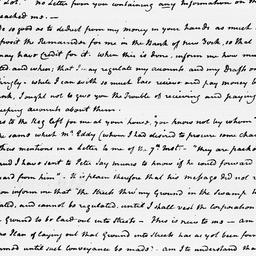 Lot." no Letter from you containing any Information on the
reached me. —
be so good as to deduct from my money in your hands as much
deposit the Remainder for me in the Bank of New York, so that
may have credit for it. When this is done, inform me how m
and when; that I may regulate my accounts and my Drafts on
ingly. while I can with so much Ease recieve and pay money b
York, I ought not to give you the Trouble of receiving and paying
keeping accounts about them.
as to the Keg left for me at your house, you know not by whom
the same which Mr Eddy (whom I had desired to procure some cha
thus mentions in a letter to me of the 7th Inst. "They are packed
and I have sent to Peter Jay Munro to know if he could forward
heard from him". It is plain therefore that his message did not r
you inform me that "the Street thro' my Ground in the Swamp
lated, and cannot be regulated, until I shall vest the corporation
Ground to be laid out into Streets — This is new to me — am
no Plan of laying out that Ground into Streets has as yet been form
formed until such Conveyance be made? — am I to understand tha